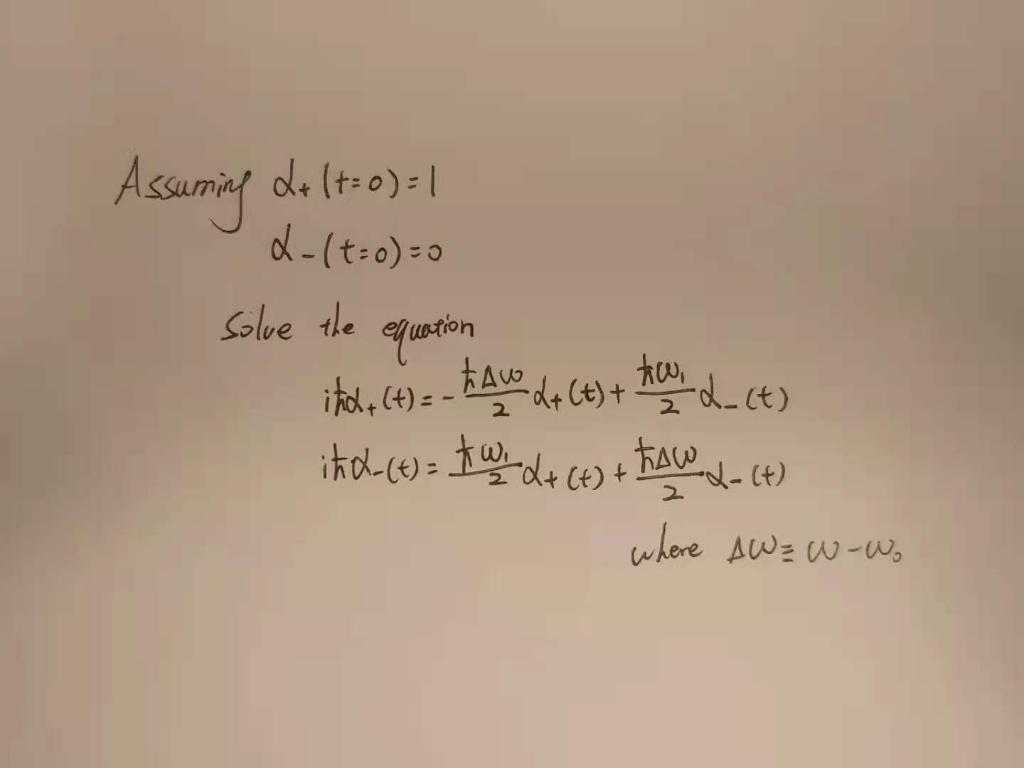 Assuming α₊(t=0)=1
α₋(t=0)=0
Solve the equation
iħα₊(t) = -ħΔω/2 α₊(t) + ħω₁/2 α₋(t)
iħα₋(t) = ħω₁/2 α₊(t) + ħΔω/2 α₋(t)
where Δω ≡ ω-ω₀